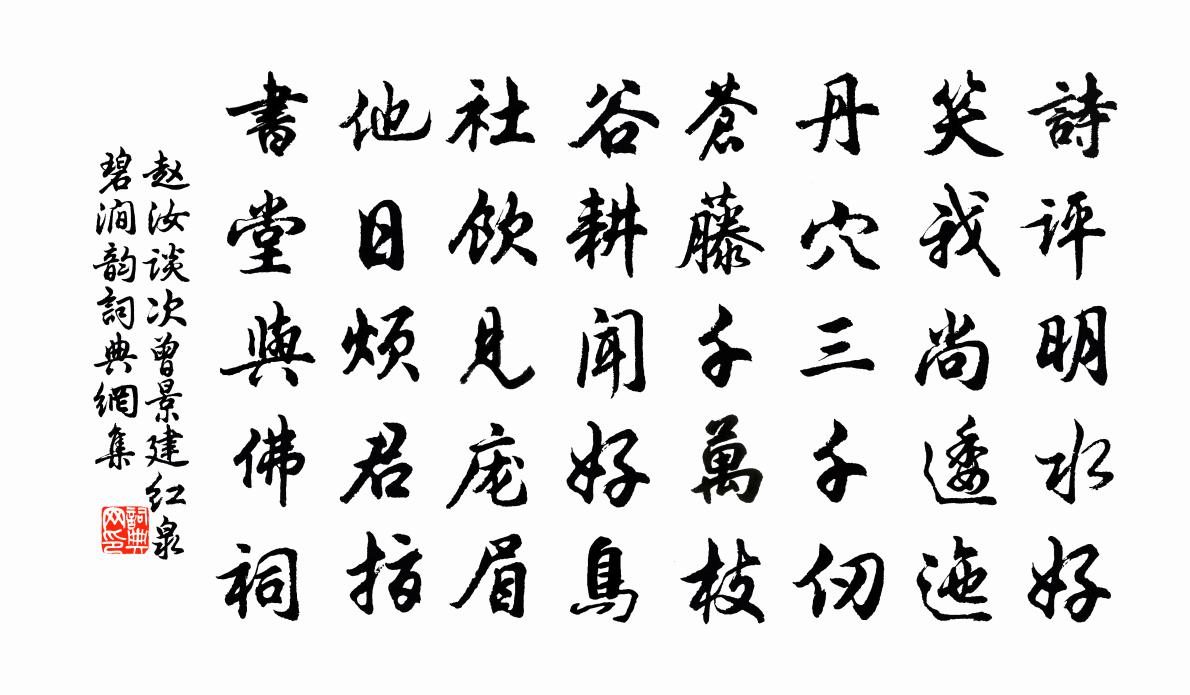 詩評明水好
笑我尚逶迤
丹穴三千仞
蒼藤千萬枝
谷耕聞好鳥
社飲見庞眉
他日煩君指
書堂與佛祠
赵汝谈次曾景建红泉
碧澗韵詞典網集
詞典
网印